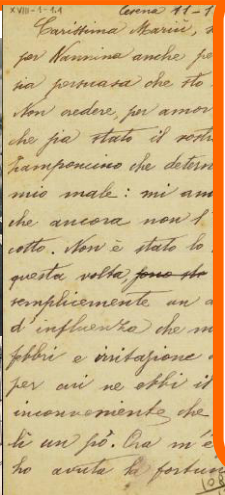 XVIII-1-1.1
Cesena 11-1
Carissima Mariù,
per Nannina anche pe
sia persuasa che sto
Non credere, per amor
che sia stato il vostr
Zamponcino che determ
mio male: mi am
che ancora non l'
cotto. Non è stato lo
questa volta, sono sta
semplicemente un a
d'influenza che m
febbri e irritazione
per cui ne ebbi il
inconveniente che
lì un pò. Ora m'è
ho avuta la fortun
108